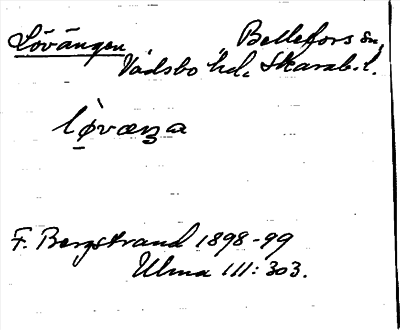 Lövängen Bellefors sn,
Vadsbo hd. Skarab. l.
lø̀væŋa
F. Bergstrand 1898-99
Ulma 111:303.